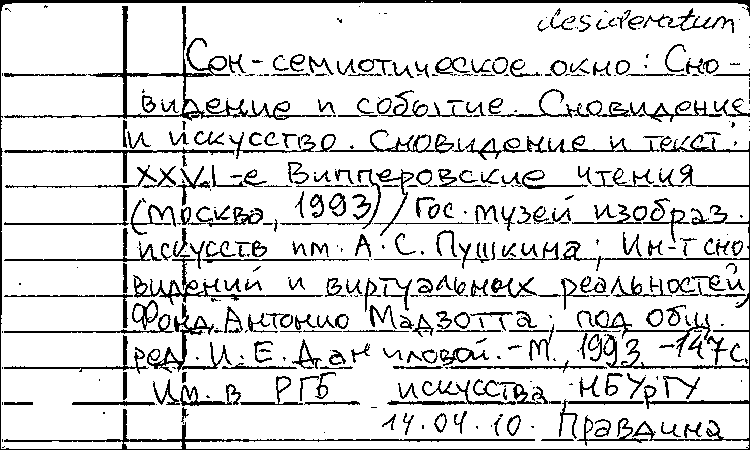 desideratum
Сон-семиотическое окно: Сно-
видение и событие. Сновидение
и искусство. Сновидение и текст:
XXVI-е Випперовские чтения
(Москва, 1993) / Гос. музей изобраз.
искусств им. А.С. Пушкина; Ин-т сно-
видений и виртуальных реальностей,
Фонд Антонио Мадзотта; под общ.
ред. И.Е. Даниловой. - М., 1993 - 147 с.
Им. в РГБ искусства, НБУрГУ
14.04.10. Правдина